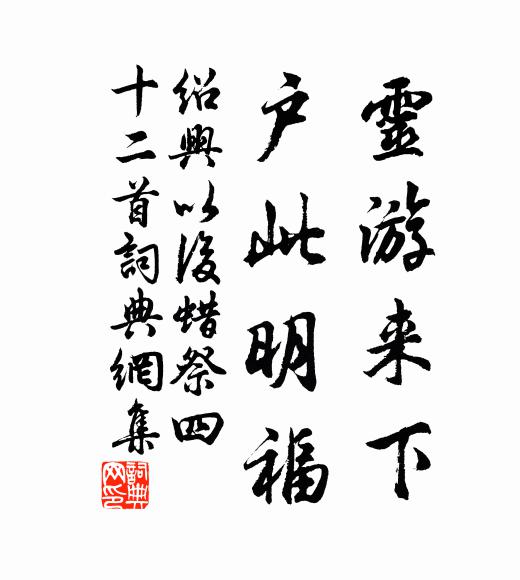 靈游来下
户此明福
绍興以後蜡祭四
十二首詞典網集